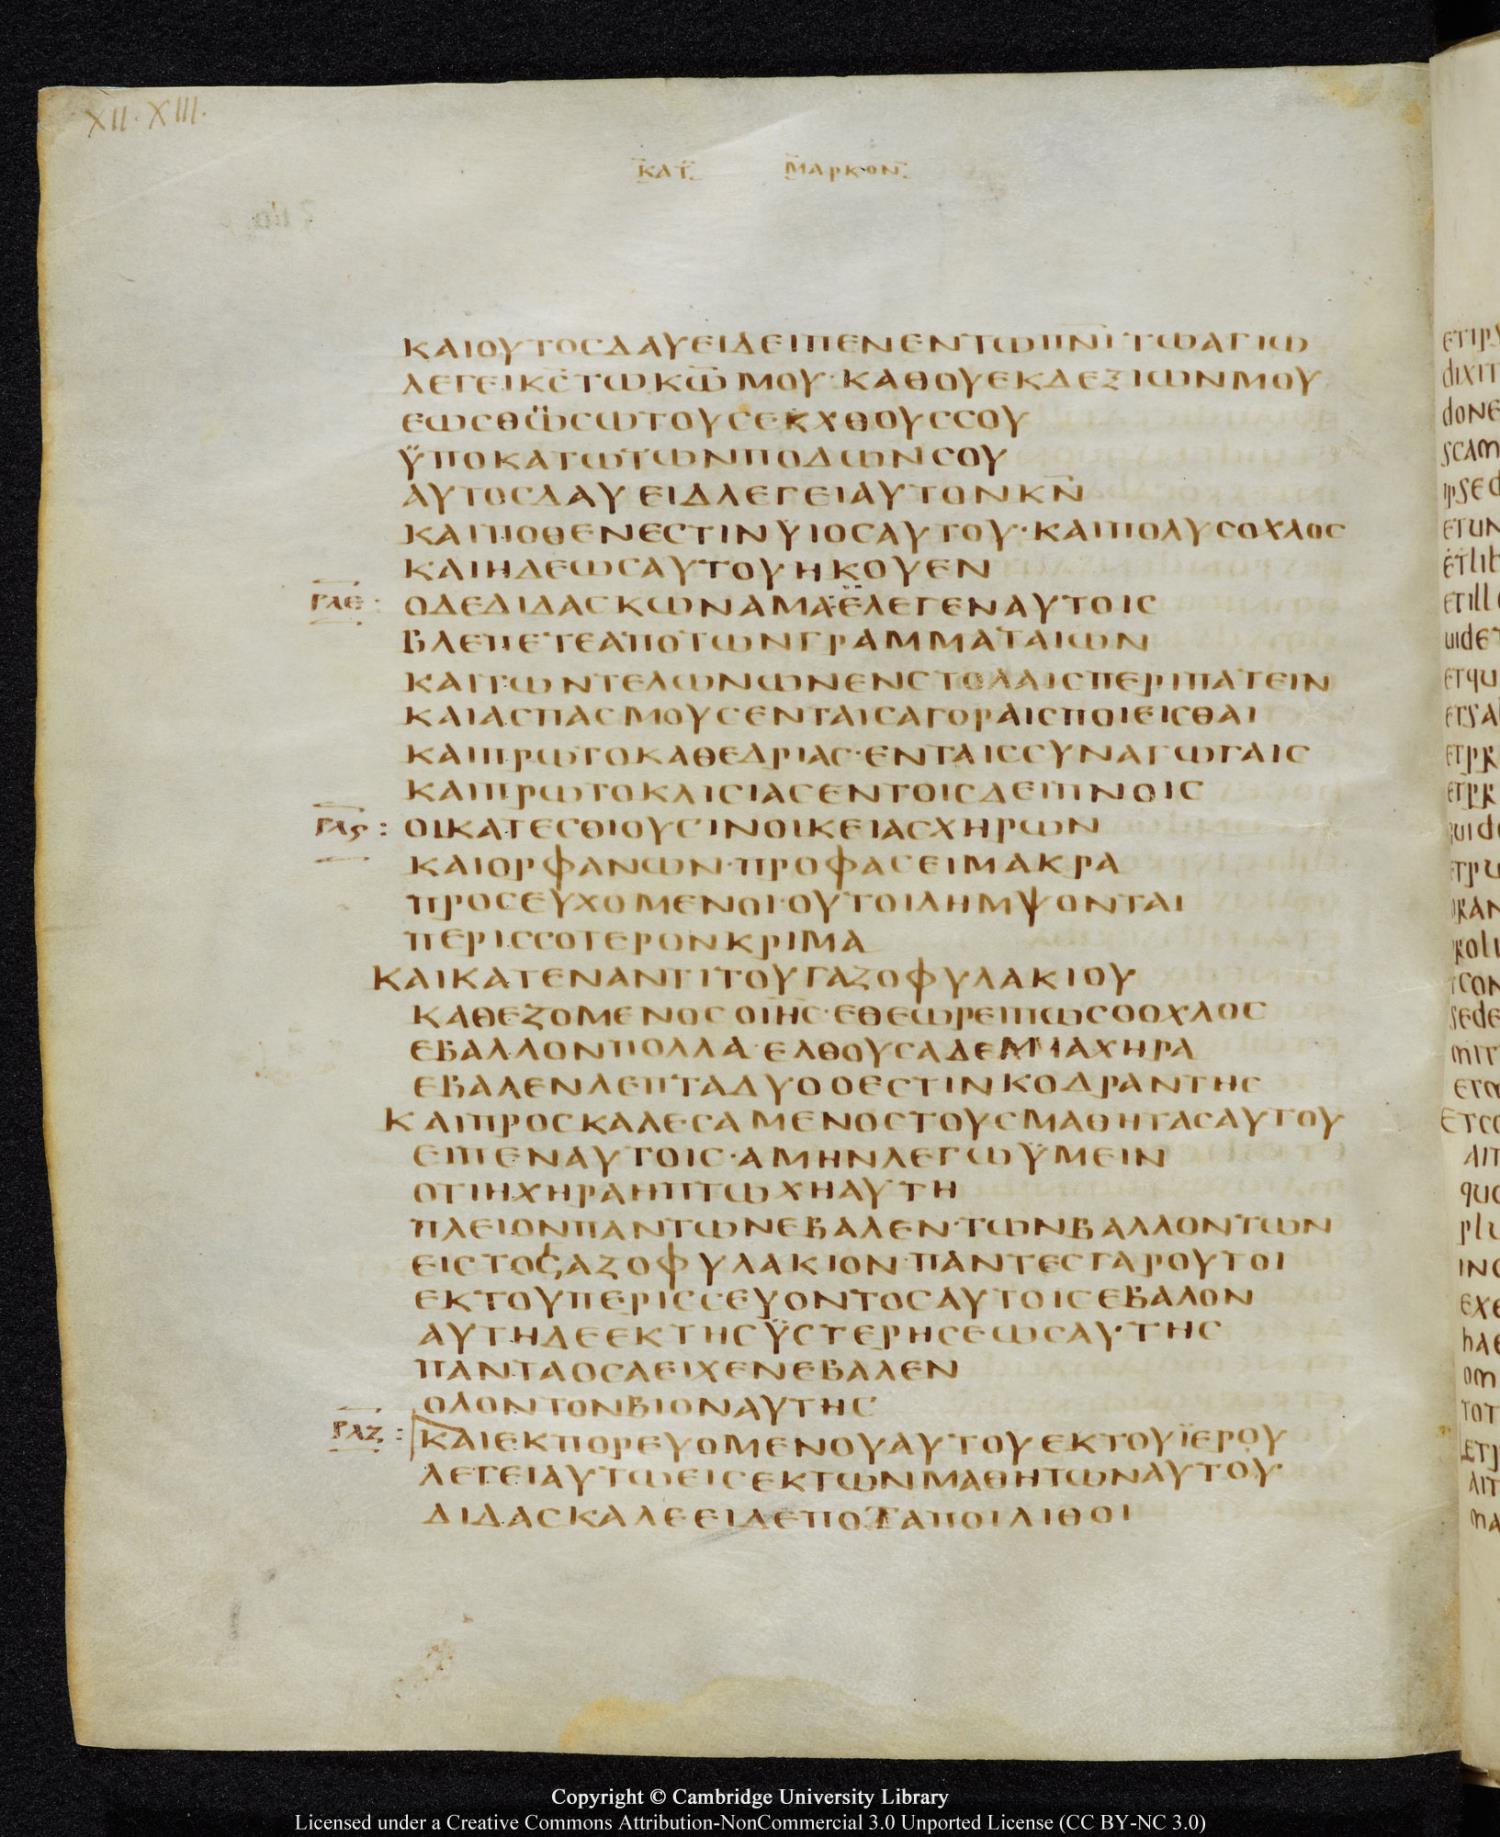 XII. XIII.
ΚΑΤ ΜΑΡΚΟΝ
ΚΑΙΟΥΤΟΣΔΑΥΕΙΔΕΙΠΕΝΕΝΤΩΠΝΙΤΩΑΓΙΩ
ΛΕΓΕΙΚΣΤΩΚΩΜΟΥ·ΚΑΘΟΥΕΚΔΕΞΙΩΝΜΟΥ
ΕΩΣΘΩΣΩΤΟΥΣΕΚΧΘΟΥΣΣΟΥ
ΫΠΟΚΑΤΩΤΩΝΠΟΔΩΝΣΟΥ
ΑΥΤΟΣΔΑΥΕΙΔΛΕΓΕΙΑΥΤΟΝΚΝ
ΚΑΙΠΟΘΕΝΕΣΤΙΝΫΙΟΣΑΥΤΟΥ·ΚΑΙΠΟΛΥΣΟΧΛΟΣ
ΚΑΙΗΔΕΩΣΑΥΤΟΥΗΚΟΥΕΝ
ΓΛΕ: ΟΔΕΔΙΔΑΣΚΩΝΑΜΑΕΛΕΓΕΝΑΥΤΟΙΣ
ΒΛΕΠΕΤΕΑΠΟΤΩΝΓΡΑΜΜΑΤΑΙΩΝ
ΚΑΙΤΩΝΤΕΛΩΝΩΝΕΝΣΤΟΛΑΙΣΠΕΡΙΠΑΤΕΙΝ
ΚΑΙΑΣΠΑΣΜΟΥΣΕΝΤΑΙΣΑΓΟΡΑΙΣΠΟΙΕΙΣΘΑΙ
ΚΑΙΠΡΩΤΟΚΑΘΕΔΡΙΑΣ·ΕΝΤΑΙΣΣΥΝΑΓΩΓΑΙΣ
ΚΑΙΠΡΩΤΟΚΛΙΣΙΑΣΕΝΤΟΙΣΔΕΙΠΝΟΙΣ
ΓΛϚ: ΟΙΚΑΤΕΣΘΙΟΥΣΙΝΟΙΚΕΙΑΣΧΗΡΩΝ
ΚΑΙΟΡΦΑΝΩΝ·ΠΡΟΦΑΣΕΙΜΑΚΡΑ
ΠΡΟΣΕΥΧΟΜΕΝΟΙ·ΟΥΤΟΙΛΗΜΨΟΝΤΑΙ
ΠΕΡΙΣΣΟΤΕΡΟΝΚΡΙΜΑ
ΚΑΙΚΑΤΕΝΑΝΤΙΤΟΥΓΑΖΟΦΥΛΑΚΙΟΥ
ΚΑΘΕΖΟΜΕΝΟΣΟΙΗΣ·ΕΘΕΩΡΕΙΠΩΣΟΟΧΛΟΣ
ΕΒΑΛΛΟΝΠΟΛΛΑ·ΕΛΘΟΥΣΑΔΕΜΙΑΧΗΡΑ
ΕΒΑΛΕΝΛΕΠΤΑΔΥΟΟΕΣΤΙΝΚΟΔΡΑΝΤΗΣ
ΚΑΙΠΡΟΣΚΑΛΕΣΑΜΕΝΟΣΤΟΥΣΜΑΘΗΤΑΣΑΥΤΟΥ
ΕΙΠΕΝΑΥΤΟΙΣ·ΑΜΗΝΛΕΓΩΫΜΕΙΝ
ΟΤΙΗΧΗΡΑΗΠΤΩΧΗΑΥΤΗ
ΠΛΕΙΟΝΠΑΝΤΩΝΕΒΑΛΕΝ·ΤΩΝΒΑΛΛΟΝΤΩΝ
ΕΙΣΤΟΓΑΖΟΦΥΛΑΚΙΟΝ·ΠΑΝΤΕΣΓΑΡΟΥΤΟΙ
ΕΚΤΟΥΠΕΡΙΣΣΕΥΟΝΤΟΣΑΥΤΟΙΣΕΒΑΛΟΝ
ΑΥΤΗΔΕΕΚΤΗΣΫΣΤΕΡΗΣΕΩΣΑΥΤΗΣ
ΠΑΝΤΑΟΣΑΕΙΧΕΝΕΒΑΛΕΝ
ΟΛΟΝΤΟΝΒΙΟΝΑΥΤΗΣ
ΓΛΖ: ΚΑΙΕΚΠΟΡΕΥΟΜΕΝΟΥΑΥΤΟΥΕΚΤΟΥΪΕΡΟΥ
ΛΕΓΕΙΑΥΤΩΕΙΣΕΚΤΩΝΜΑΘΗΤΩΝΑΥΤΟΥ
ΔΙΔΑΣΚΑΛΕΕΙΔΕΠΟΤΑΠΟΙΛΙΘΟΙ
Copyright © Cambridge University Library
Licensed under a Creative Commons Attribution-NonCommercial 3.0 Unported License (CC BY-NC 3.0)